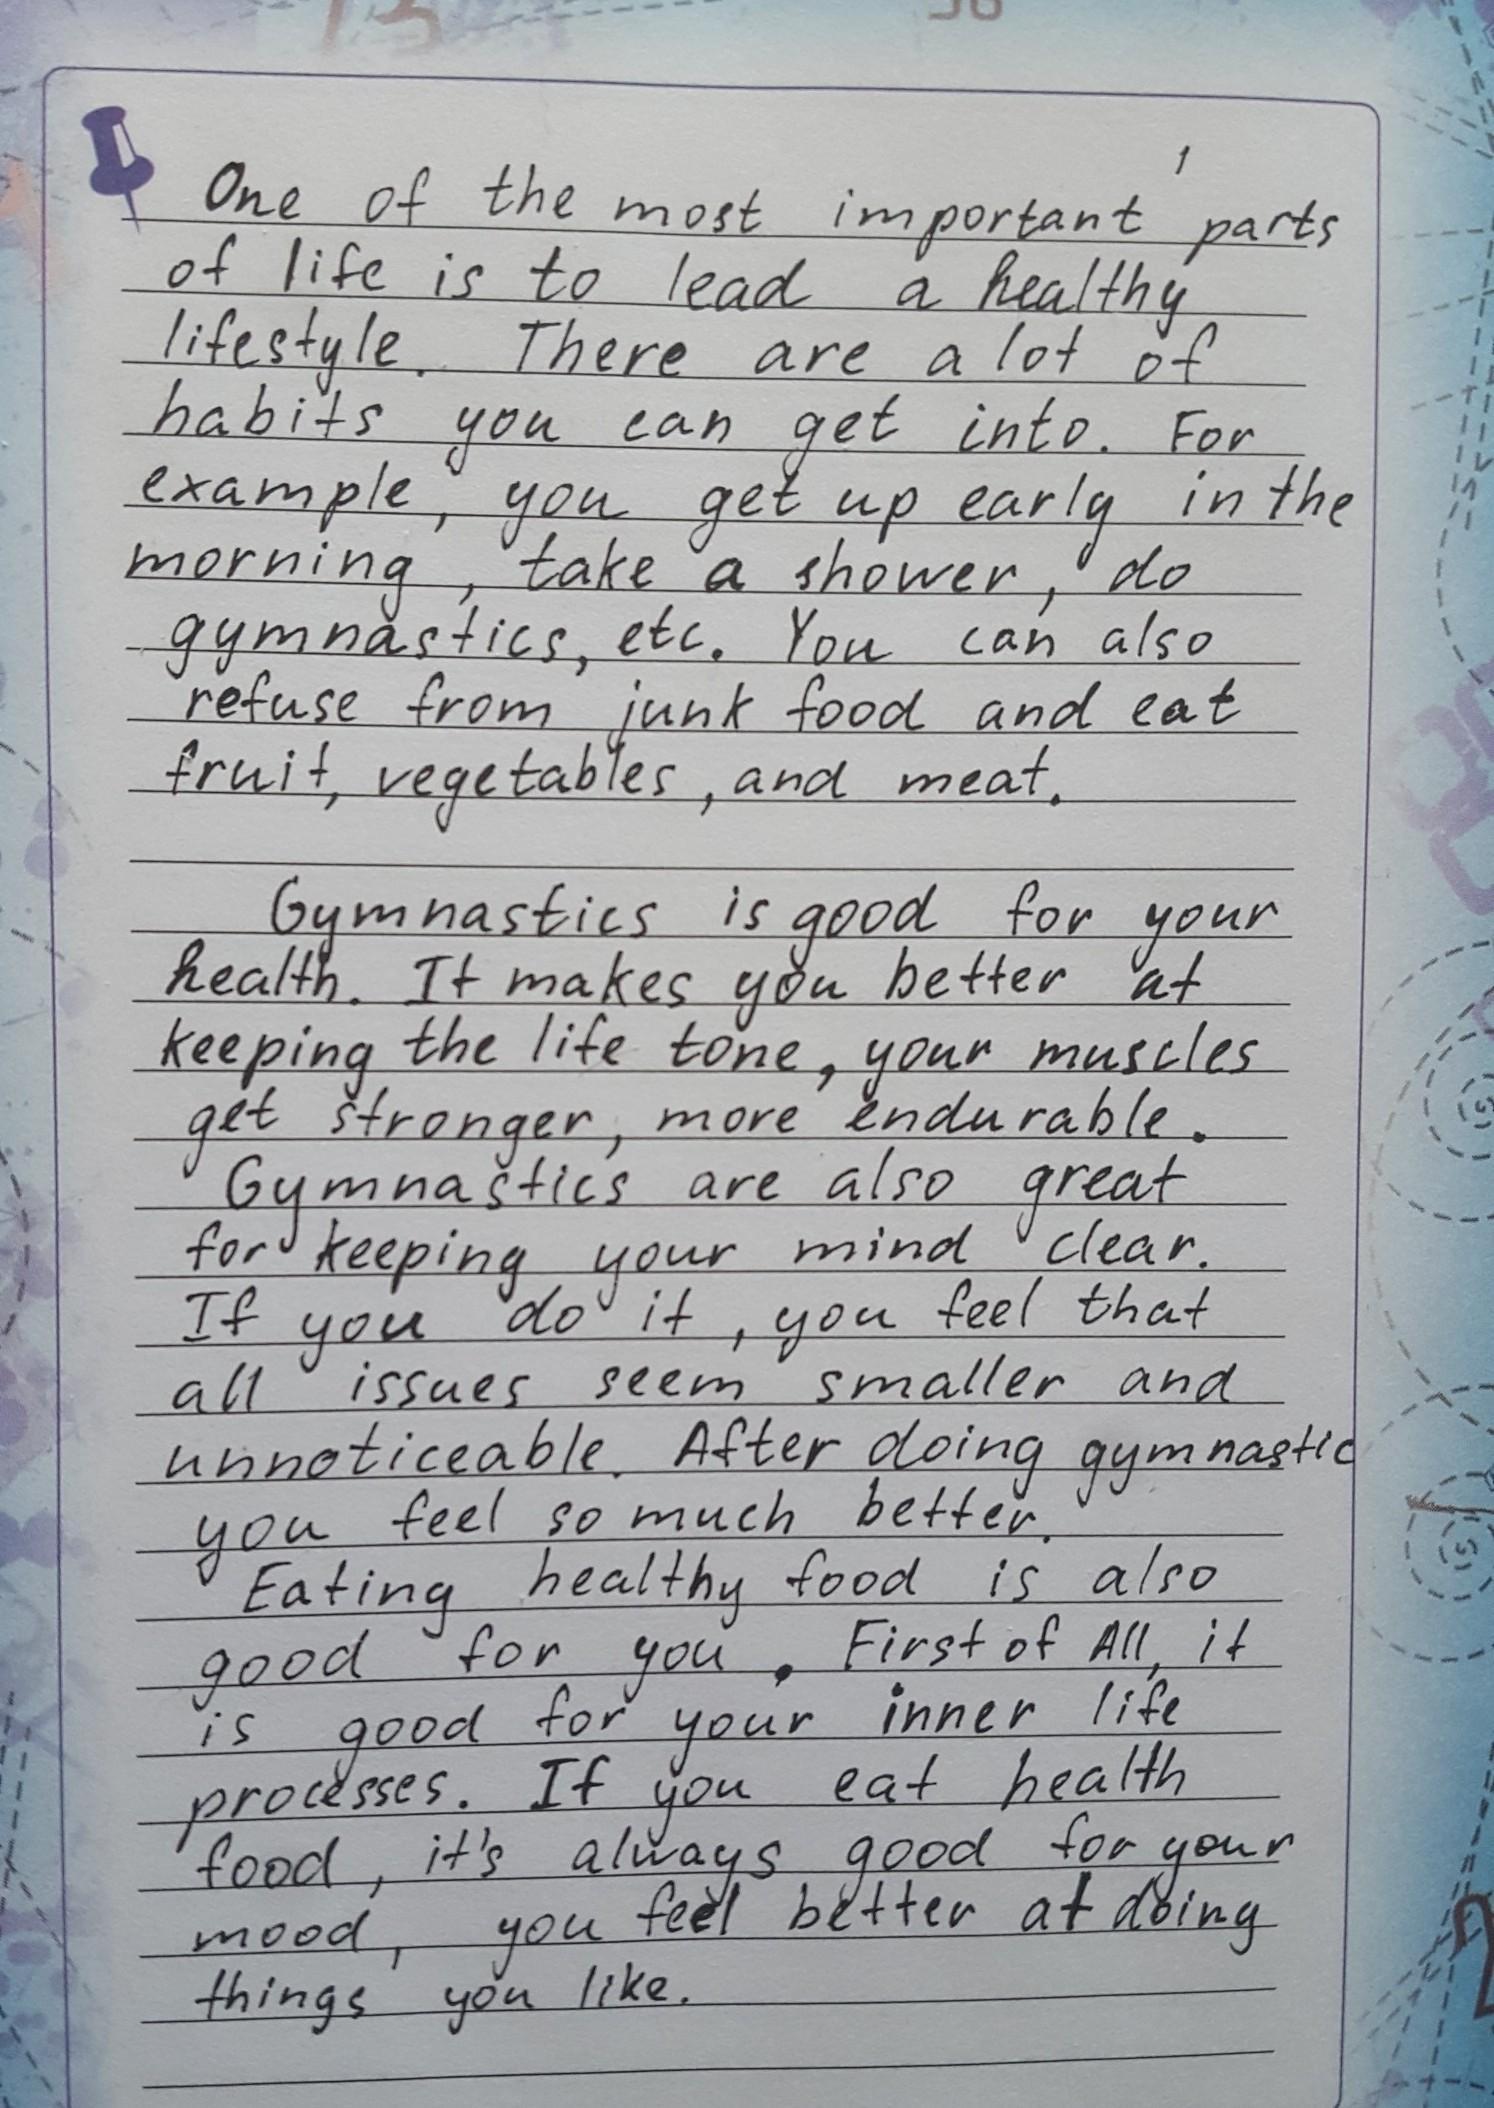 1
One of the most important parts
of life is to lead a healthy
lifestyle. There are a lot of
habits you can get into. For
example, you get up early in the
morning, take a shower, do
gymnastics, etc. You can also
refuse from junk food and eat
fruit, vegetables, and meat.
Gymnastics is good for your
health. It makes you better at
keeping the life tone, your muscles
get stronger, more endurable.
Gymnastics are also great
for keeping your mind clear.
If you do it, you feel that
all issues seem smaller and
unnoticeable. After doing gymnastic
you feel so much better.
Eating healthy food is also
good for you. First of All, it
is good for your inner life
processes. If you eat health
food, it's always good for your
mood, you feel better at doing
things you like.